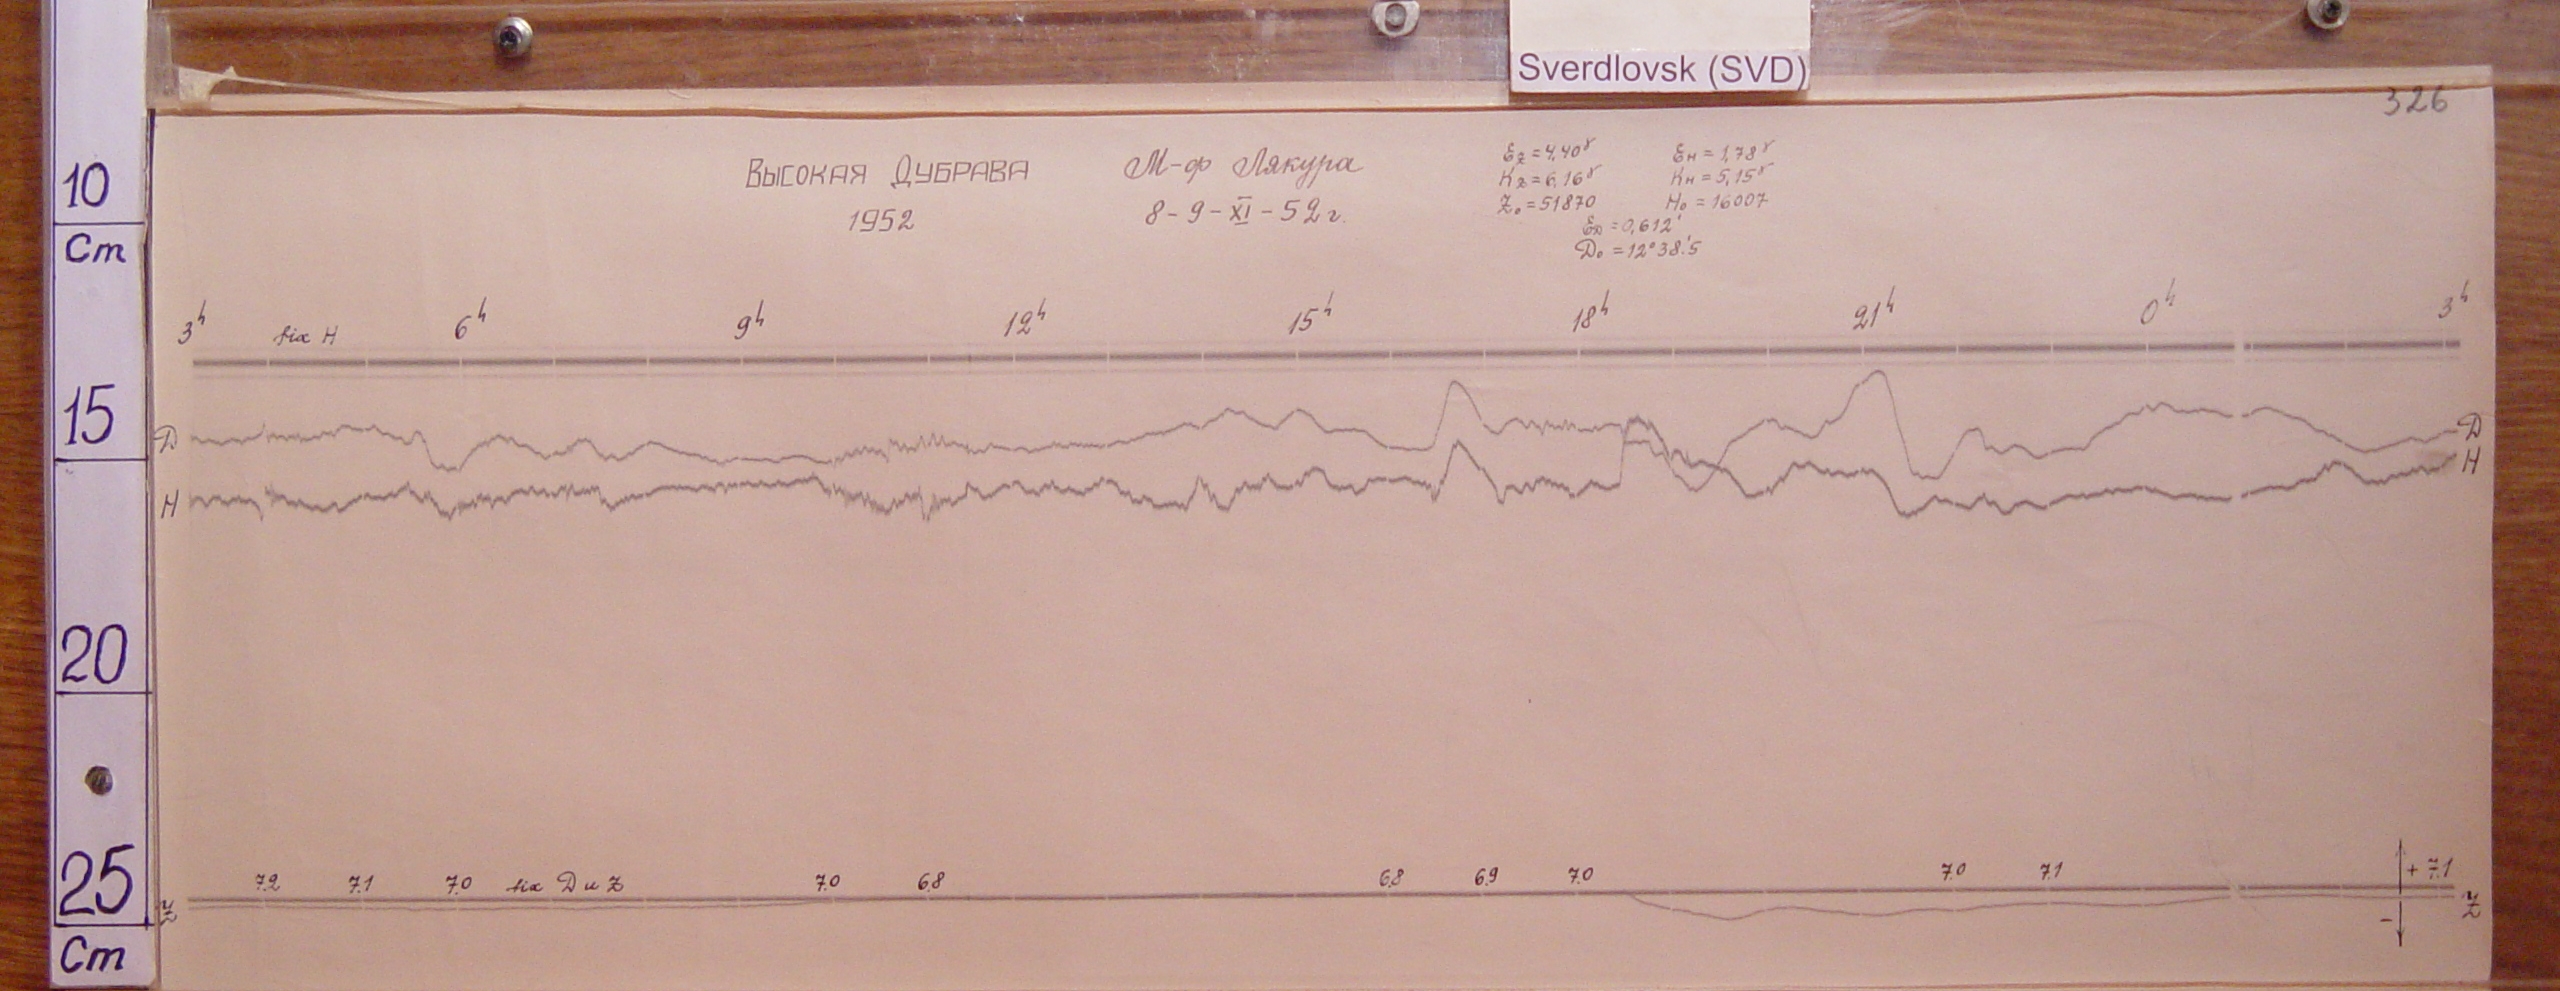 Sverdlovsk (SVD)
326
10
Cm
15
20
25
Cm
ВЫСОКАЯ ДУБРАВА
1952
М-ф Лякура
8-9-XI-52 г.
Ez = 4,40γ Eн = 1,78γ
Kz = 6,16γ Kн = 5,15γ
Z₀ = 51870 H₀ = 16007
ED = 0,612'
D₀ = 12°38.'5
3h fix H 6h 9h 12h 15h 18h 21h 0h 3h
D D
H H
7.2 7.1 7.0 fix D и Z 7.0 6.8 6.8 6.9 7.0 7.0 7.1 + 7.1
Z - Z